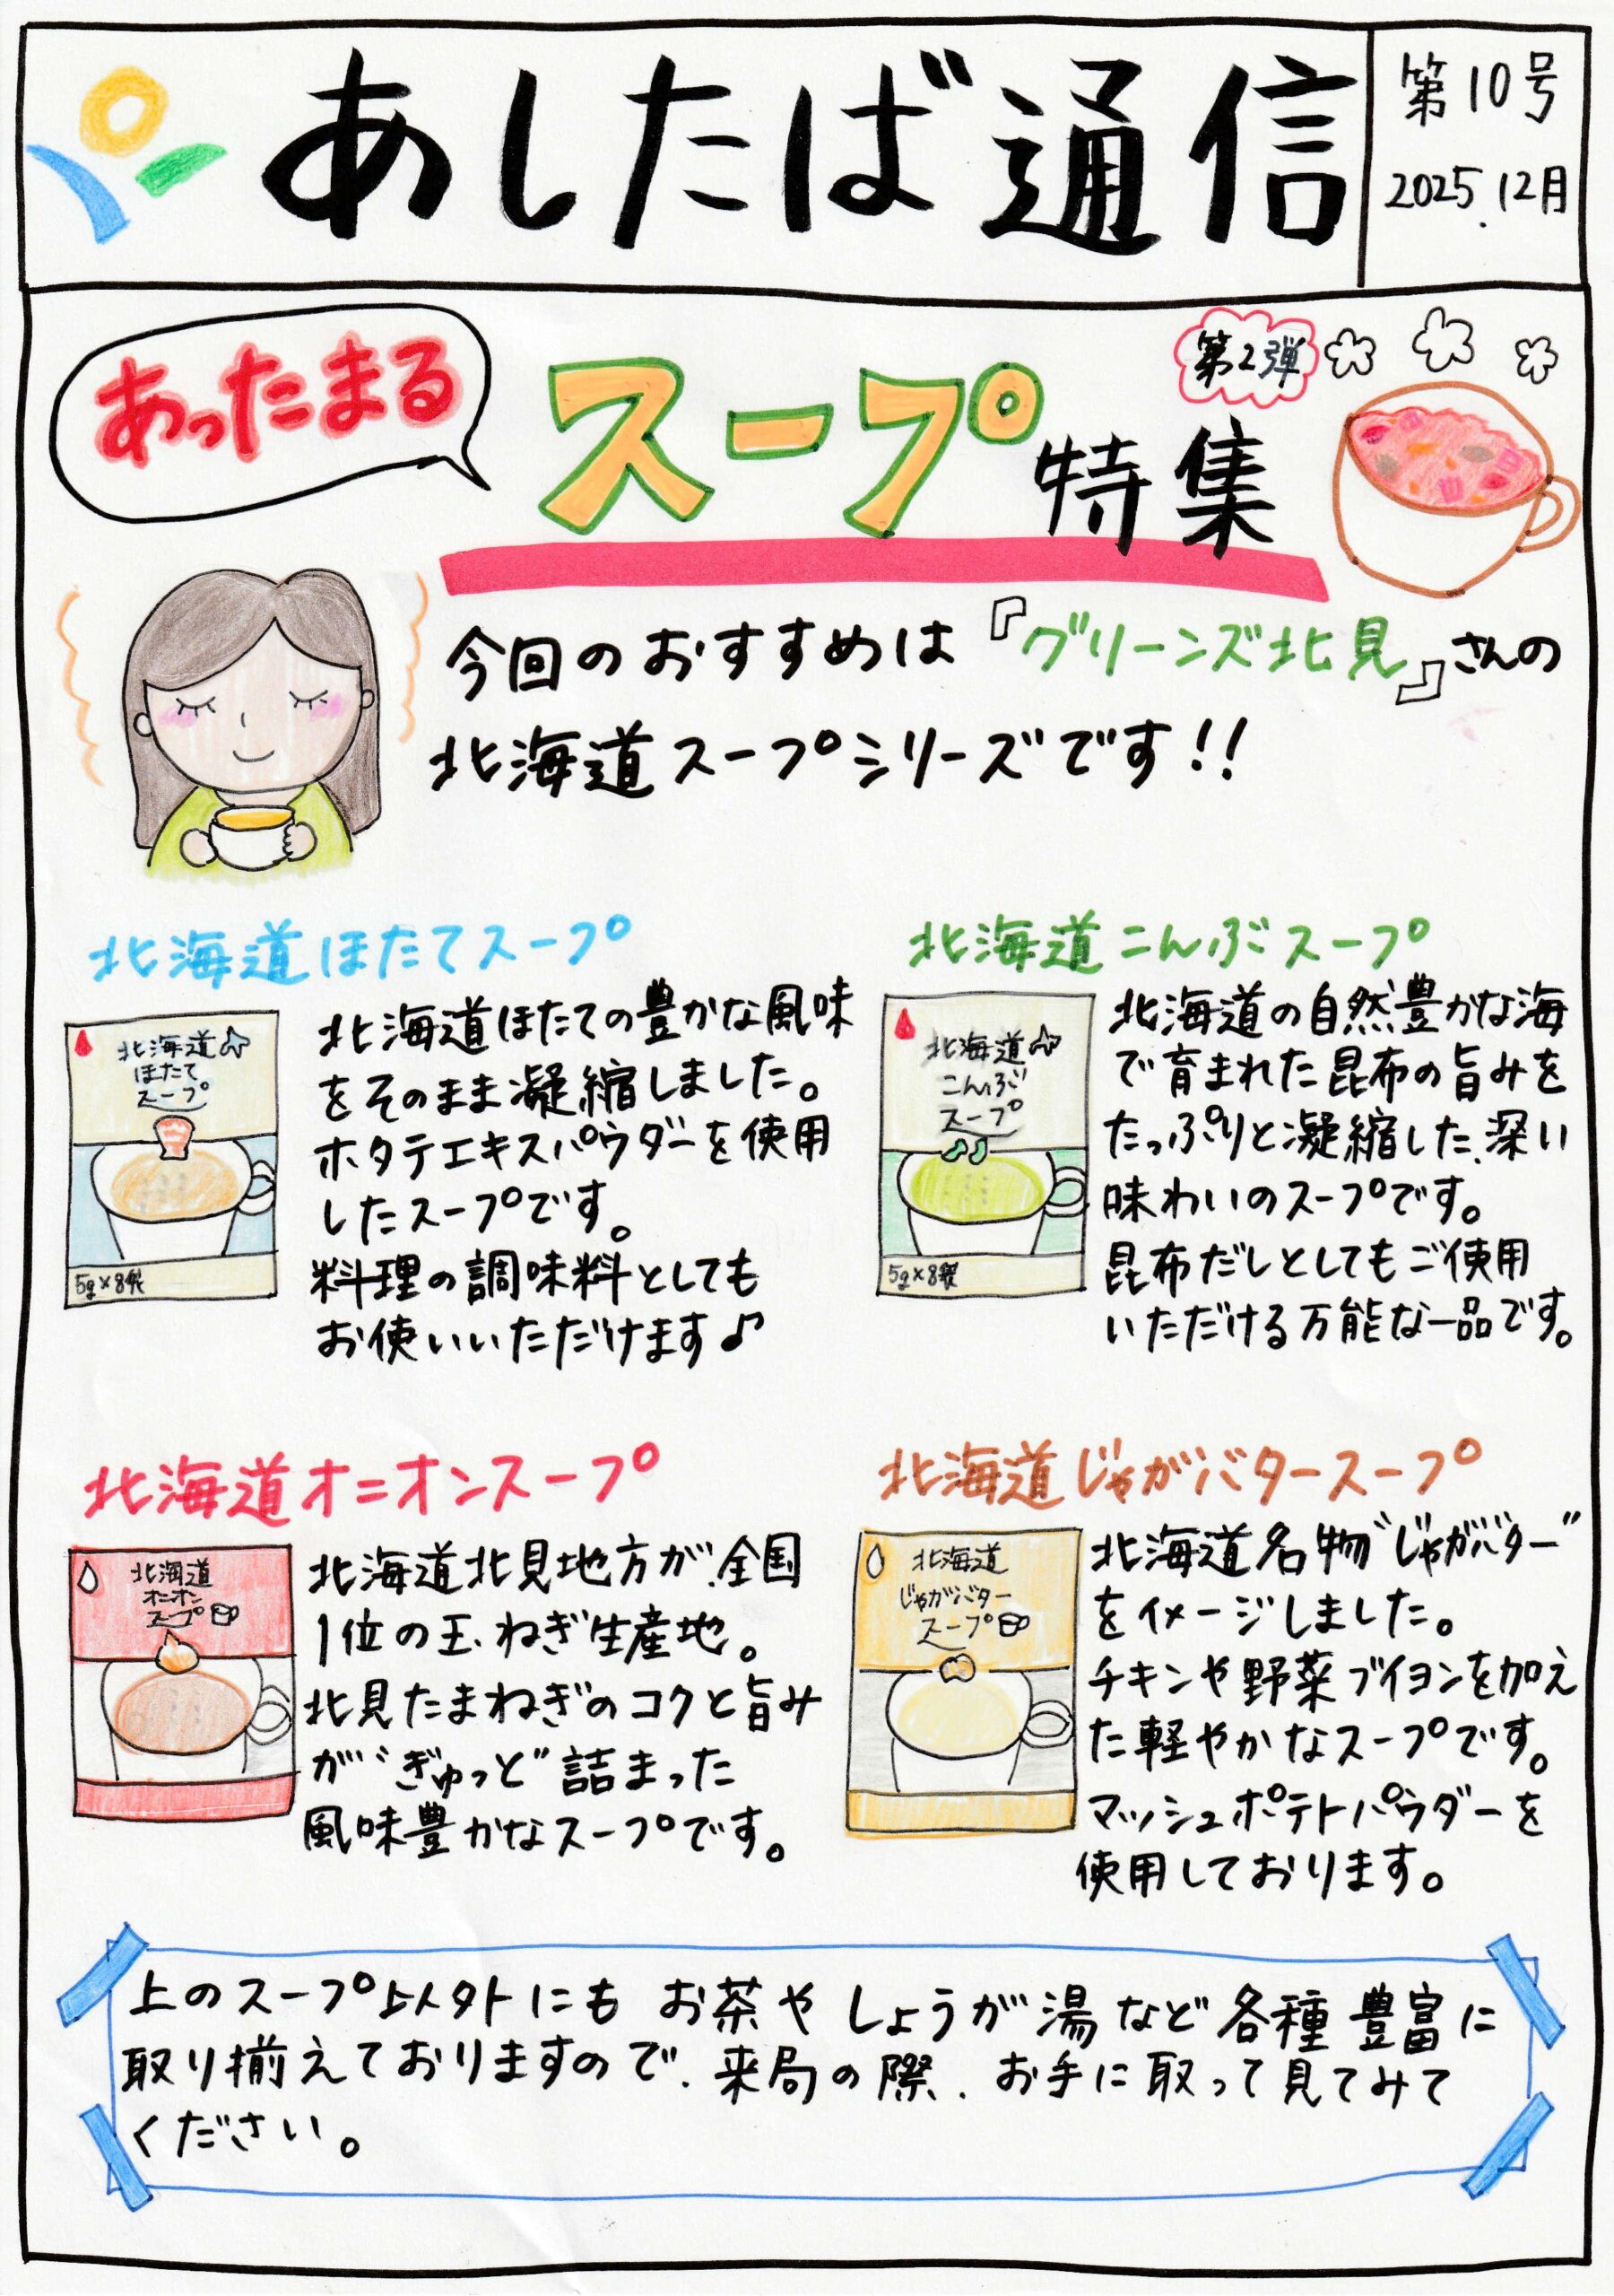 あしたば通信
第10号
2025.12月
あったまる
スープ特集
第2弾
今回のおすすめは『グリーンズ北見』さんの
北海道スープシリーズです!!
北海道ほたてスープ
北海道
ほたて
スープ
5g×8袋
北海道ほたての豊かな風味
をそのまま凝縮しました。
ホタテエキスパウダーを使用
したスープです。
料理の調味料としても
お使いいただけます♪
北海道こんぶスープ
北海道
こんぶ
スープ
5g×8袋
北海道の自然豊かな海
で育まれた昆布の旨みを
たっぷりと凝縮した、深い
味わいのスープです。
昆布だしとしてもご使用
いただける万能な一品です。
北海道オニオンスープ
北海道
オニオン
スープ
北海道北見地方が、全国
1位の玉ねぎ生産地。
北見たまねぎのコクと旨み
が“ぎゅっと”詰まった
風味豊かなスープです。
北海道じゃがバタースープ
北海道
じゃがバター
スープ
北海道名物“じゃがバター”
をイメージしました。
チキンや野菜ブイヨンを加え
た軽やかなスープです。
マッシュポテトパウダーを
使用しております。
上のスープ以外にも お茶や しょうが湯など各種豊富に
取り揃えておりますので、来局の際、お手に取って見てみて
ください。